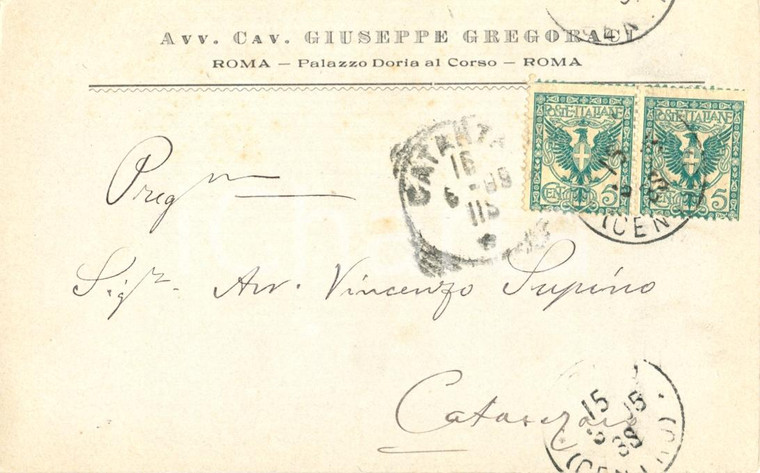 Avv. Cav. GIUSEPPE GREGORACI
ROMA — Palazzo Doria al Corso — ROMA
POSTE·ITALIANE POSTE·ITALIANE
CENT. 5 5
CATANZA
16
(CEN
Preg^mo
Sig^r. Avv. Vincenzo Supino
Catanzaro
15
(CEN